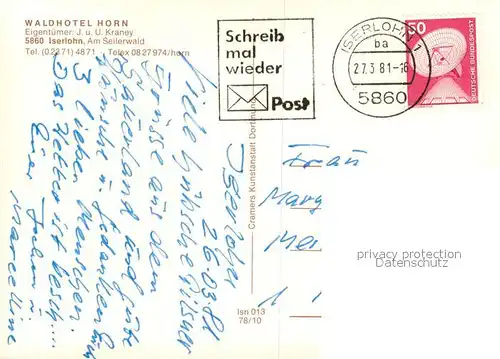 WALDHOTEL HORN
Eigentümer: J. u. U. Kraney
5860 Iserlohn, Am Seilerwald
Tel. (02371) 4871 · Telex 0827974/horn
Schreib
mal
wieder
Post
ISERLOHN 1
ba
27.3.81-16
5860
50
DEUTSCHE BUNDESPOST
Iserlohn
26.03.81
Viele hübsche
Grüsse aus dem
Sauerland und gute
Wünsche u. Gedanken
3 lieben Menschen
Das Wetter ist
Euer Jochen u.
Marcelline
Cramers Kunstanstalt Dortmund
Isn 013
78/10
Frau
Marg
Me
privacy protection
Datenschutz